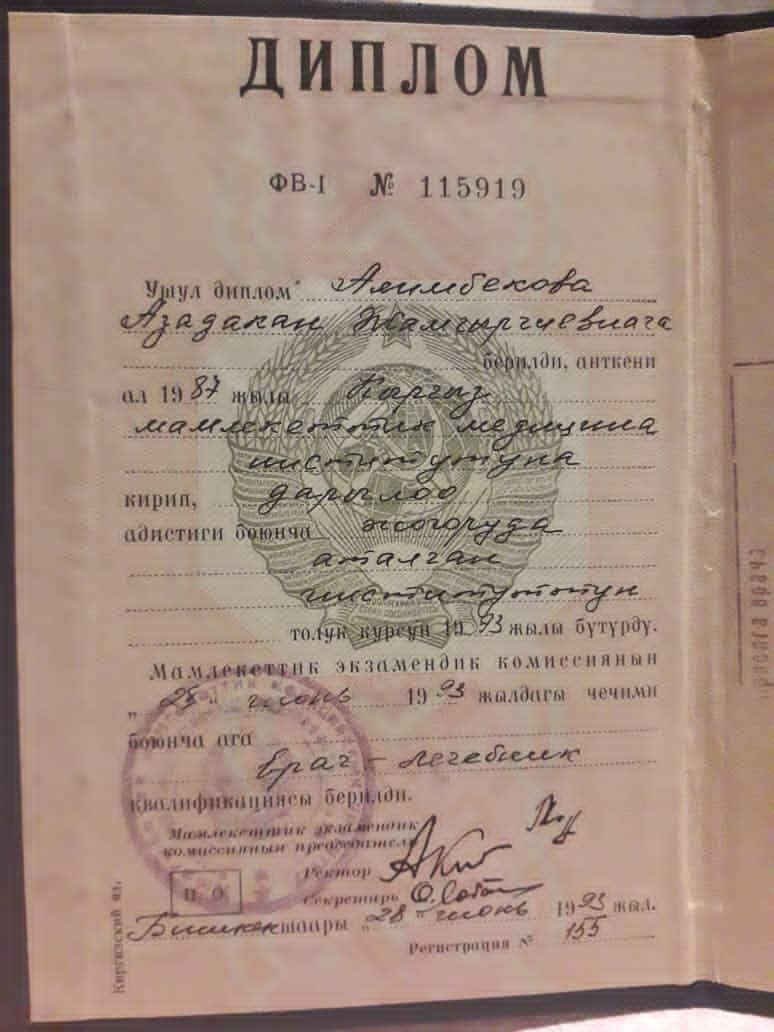 ДИПЛОМ
ФВ-I № 115919
Ушул диплом Алимбекова
Азадакан Жамгырчиевнага
берилди, анткени
ал 1987 жылы Кыргыз
мамлекеттик медицина
институтуна
кирип, дарылоо
адистиги боюнча жогоруда
аталган
институттун
толук курсун 1993 жылы бүтүрдү.
Мамлекеттик экзамендик комиссиянын
„28" июнь 1993 жылдагы чечими
боюнча ага
врач-лечебник
квалификациясы берилди.
Мамлекеттик экзамендик
комиссиянын председатели
Ректор
Секретарь
Бишкек шаары „28" июнь 1993 жыл.
Регистрация № 155
Киргизский яз.